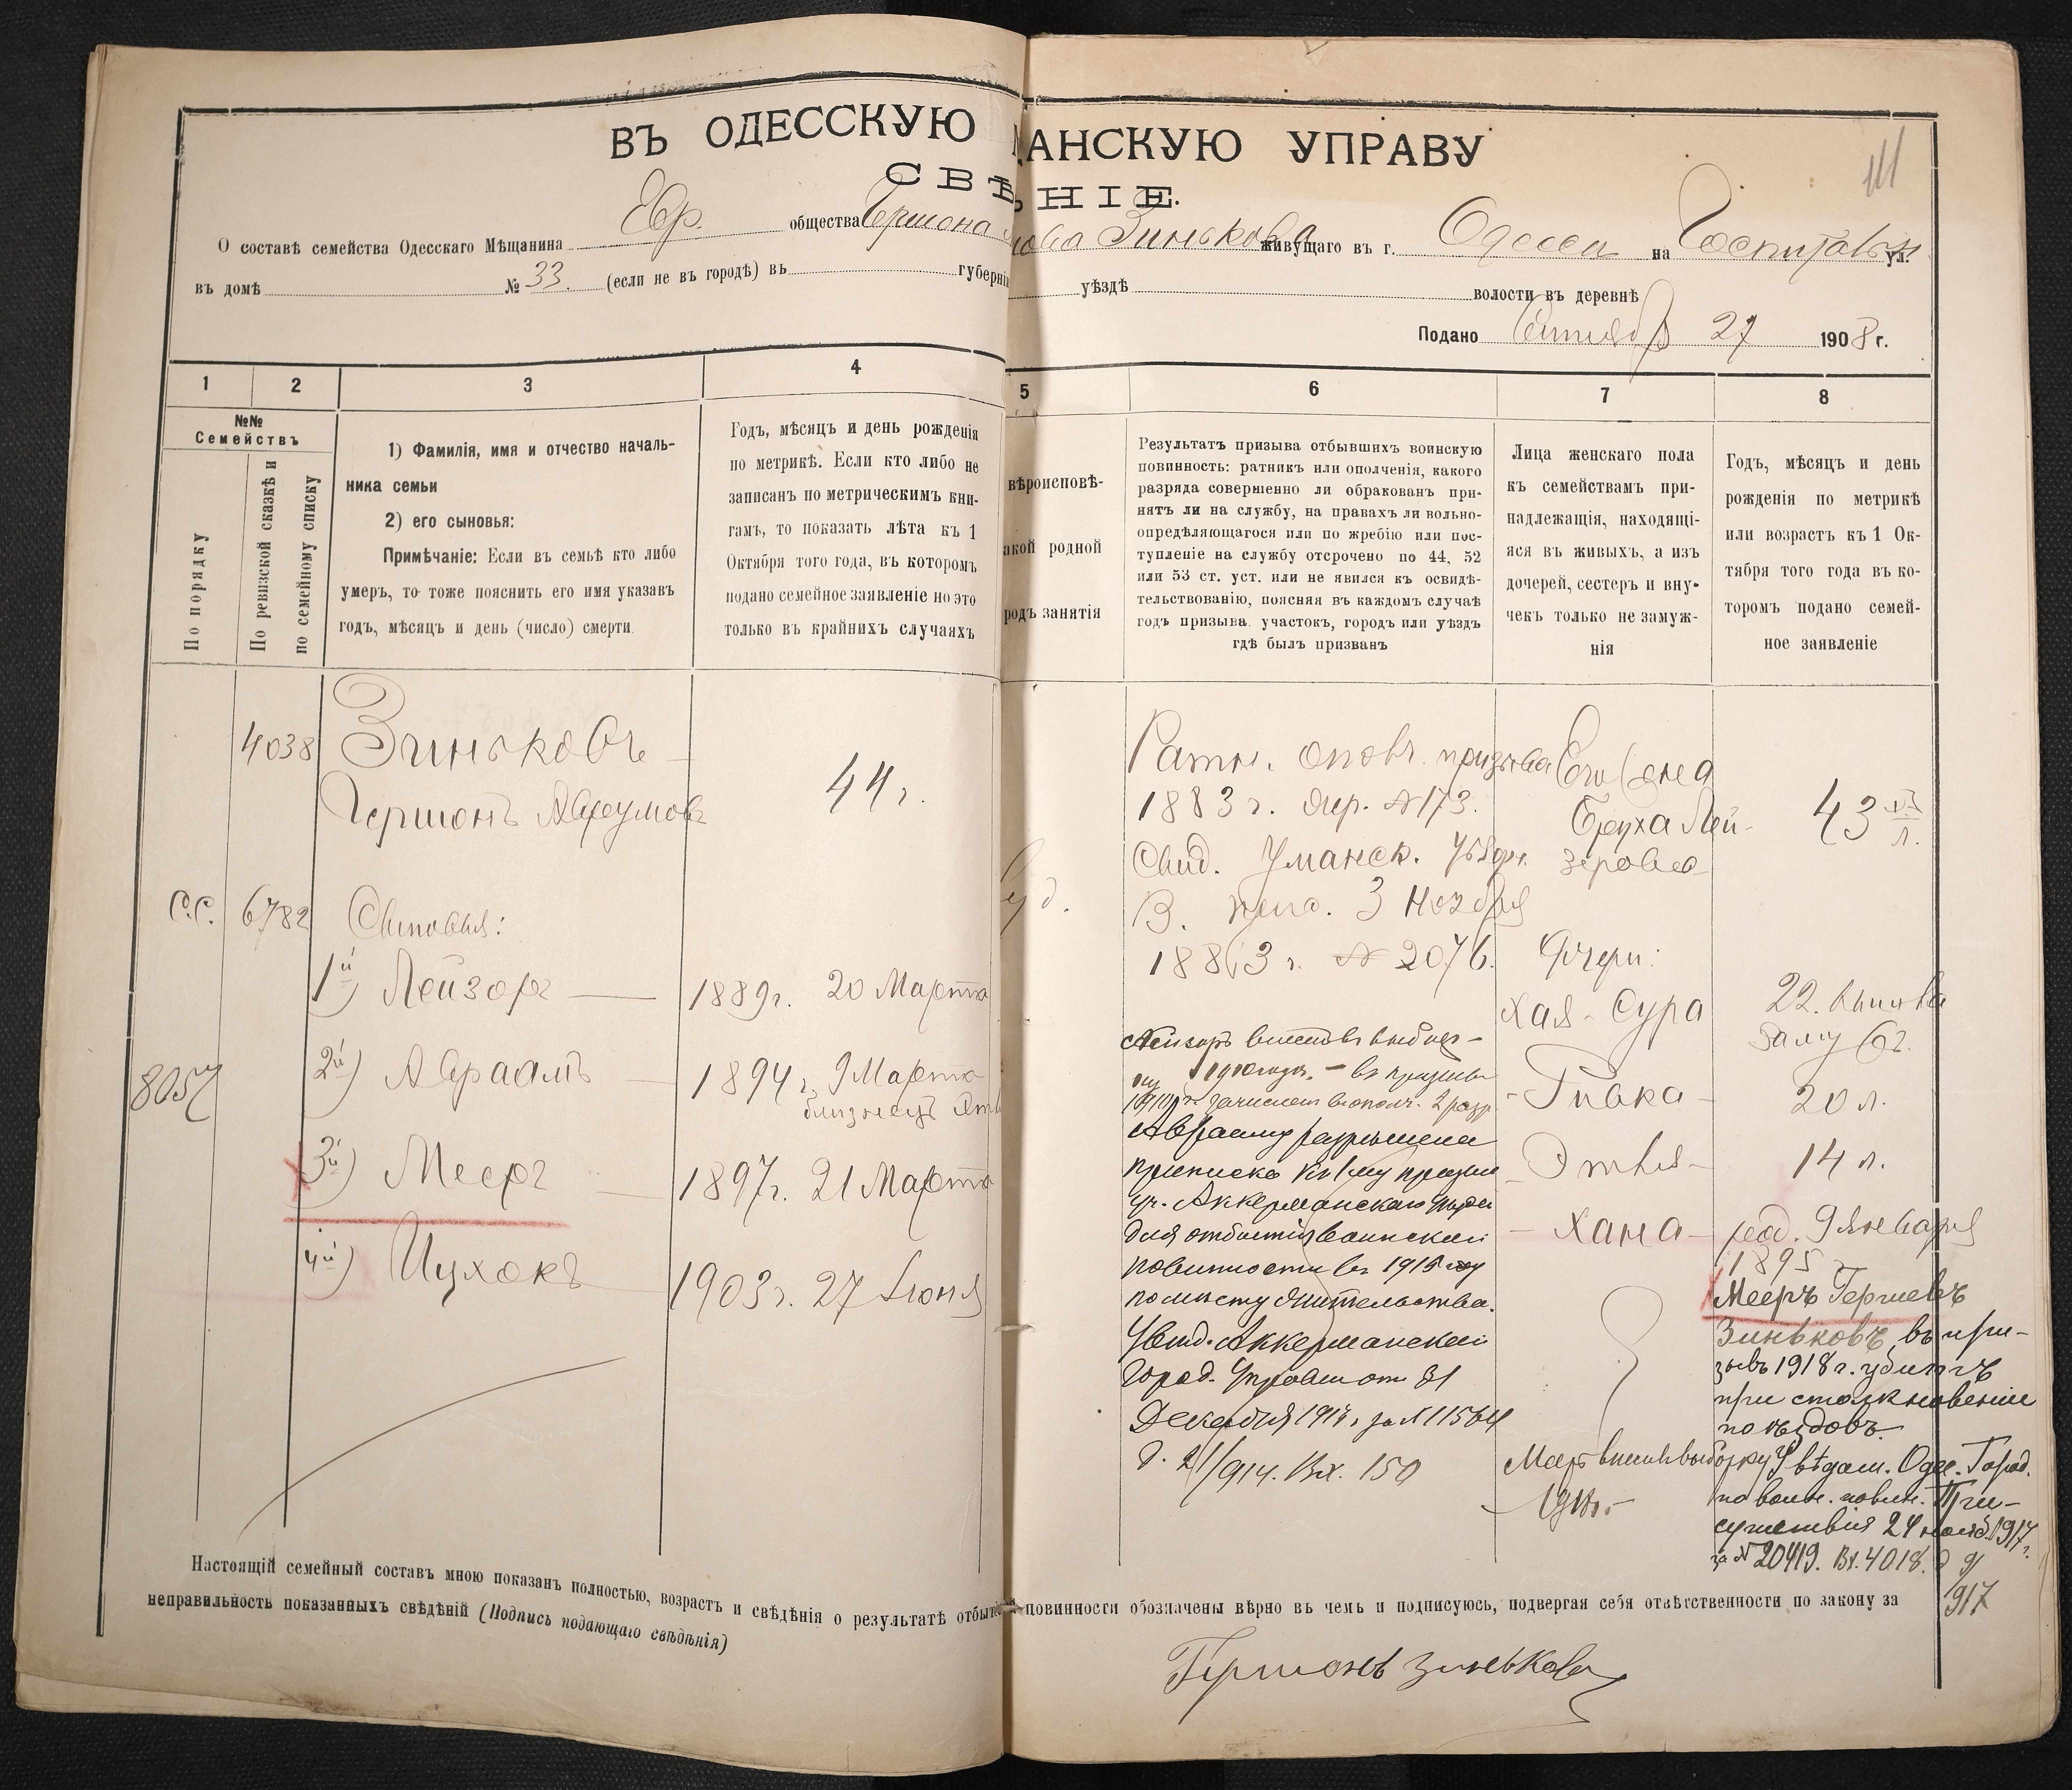 ВЪ ОДЕССКУЮ АНСКУЮ УПРАВУ
СВѢ НІЕ.
О составѣ семейства Одесскаго Мѣщанина Евр. общества Гершона Зинькова живущаго въ г. Одессѣ на Госпитальн ул.
въ домѣ № 33. (если не въ городѣ) въ губерні уѣздѣ волости въ деревнѣ
Подано Сентября 27 1908 г.
1 2 3 4 5 6 7 8
№№
Семействъ
По порядку
По ревизской сказкѣ и
по семейному списку
1) Фамилія, имя и отчество началь-
ника семьи
2) его сыновья:
Примѣчаніе: Если въ семьѣ кто либо
умеръ, то тоже пояснить его имя указавъ
годъ, мѣсяцъ и день (число) смерти.
Годъ, мѣсяцъ и день рожденія
по метрикѣ. Если кто либо не
записанъ по метрическимъ кни-
гамъ, то показать лѣта къ 1
Октября того года, въ которомъ
подано семейное заявленіе но это
только въ крайнихъ случаяхъ
вѣроисповѣ-
акой родной
родъ занятія
Результатъ призыва отбывшихъ воинскую
повинность: ратникъ или ополченія, какого
разряда совершенно ли обракованъ при-
нятъ ли на службу, на правахъ ли вольно-
опредѣляющагося или по жребію или пос-
тупленіе на службу отсрочено по 44, 52
или 53 ст. уст. или не явился къ освидѣ-
тельствованію, поясняя въ каждомъ случаѣ
годъ призыва участокъ, городъ или уѣздъ
гдѣ былъ призванъ
Лица женскаго пола
къ семействамъ при-
надлежащія, находящі-
яся въ живыхъ, а изъ
дочерей, сестеръ и вну-
чекъ только не замуж-
нія
Годъ, мѣсяцъ и день
рожденія по метрикѣ
или возрастъ къ 1 Ок-
тября того года въ ко-
торомъ подано семей-
ное заявленіе
4038 Зиньковъ
Гершонъ Аврумовъ
44 г.
С.С. 6782 Сыновья:
1й) Лейзоръ 1889г. 20 Марта
8057 2й) Авраамъ 1894 г. 9 Марта
близнецъ
3й) Мееръ 1897г. 21 Марта
4й) Ицхокъ 1903г. 27 Іюня
Ратн. ополч. призыва
1883 г. жер. №173.
Свид. Уманск. Уѣздн.
В. прис. 3 Ноября
1883 г. № 2076.
Лейзоръ внесенъ
1910 г. зачисленъ въ ополч. 2 разр.
Аврааму разрѣшена
приписка къ 1му призыв
уч. Аккерманскаго уѣзда
для отбытія воинской
повинности въ 1915 году
по мѣсту жительства.
Увѣд. Аккерманской
Город. Управы отъ 31
Декабря 191 за № 11564
д. 21/914. Вх. 150
Его жена
Бруха Лей-
зерова
Дочери:
Хая-Сура
Ривка
Этля
Хана
43 л.
22. вышла
замуж
20 л.
14 л.
род. 9 Января
1895
Мееръ Гершевъ
Зиньковъ въ при-
зывъ 1918 г. убитъ
при столкновеніи
поѣздовъ.
Увѣдом. Одес. Город.
по воин. повин. При-
сутствія 24 нояб. 1917 г.
за № 20419. Вх. 4018. д 9/917
Настоящій семейный составъ мною показанъ полностью, возрастъ и свѣдѣнія о результатѣ отбыт повинности обозначены вѣрно въ чемъ и подписуюсь, подвергая себя отвѣтственности по закону за
неправильность показанныхъ свѣдѣній (Подпись подающаго свѣдѣнія)
Гершонъ Зиньковъ